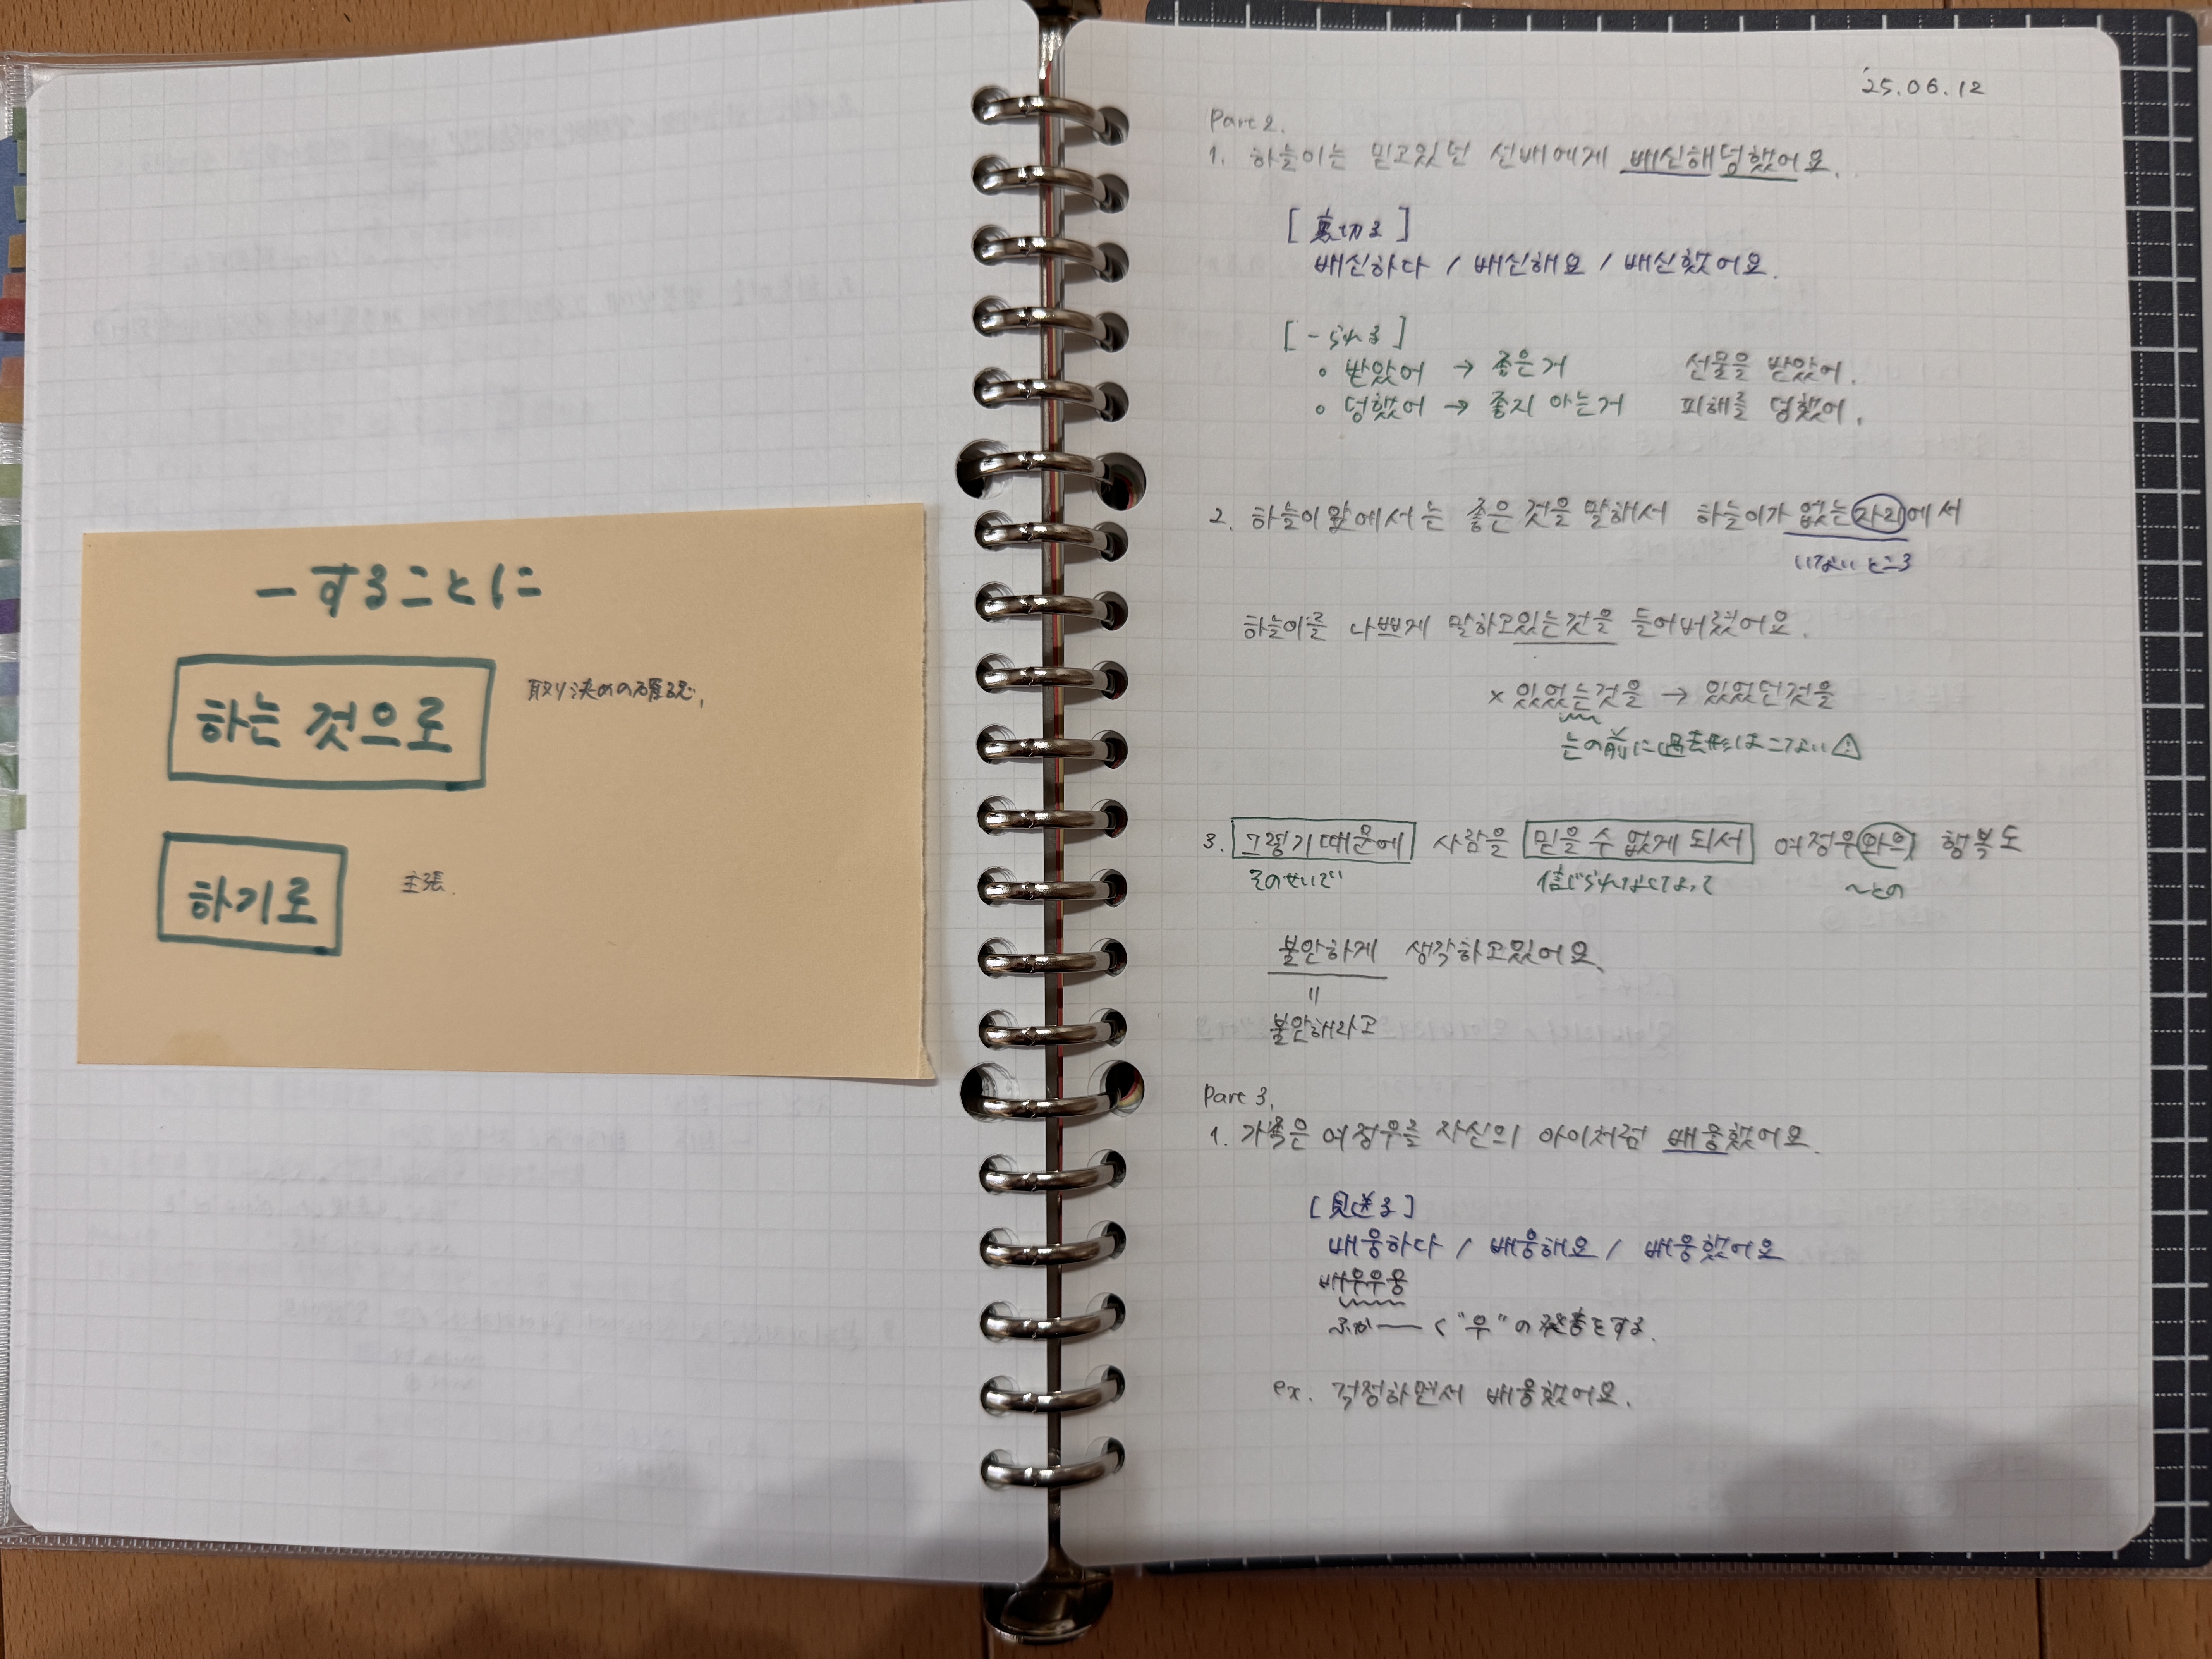 -することに
하는 것으로
取り決めの確認,
하기로
主張.
'25.06.12
Part 2.
1. 하늘이는 믿고있던 선배에게 배신해덩했어요.
[裏切る]
배신하다 / 배신해요 / 배신했어요.
[-られる]
• 받았어 → 좋은거 선물을 받았어.
• 덩했어 → 좋지 아는거 피해를 덩했어.
2. 하늘이 앞에서는 좋은 것을 말해서 하늘이가 없는 자리에서
いないところ
하늘이를 나쁘게 말하고있는것을 들어버렸어요.
× 있었는것을 → 있었던것을
는の前に過去形はこない⚠
3. 그렇기때문에 사람을 믿을 수 없게 되서 여정우와의 행복도
そのせいで 信じられなくなって ～との
불안하게 생각하고있어요.
=
불안해라고
Part 3.
1. 가족은 여정우를 자신의 아이처럼 배웅했어요.
[見送る]
배웅하다 / 배웅해요 / 배웅했어요
배우우웅
ふか――く "우"の発音をする.
ex. 걱정하면서 배웅했어요.